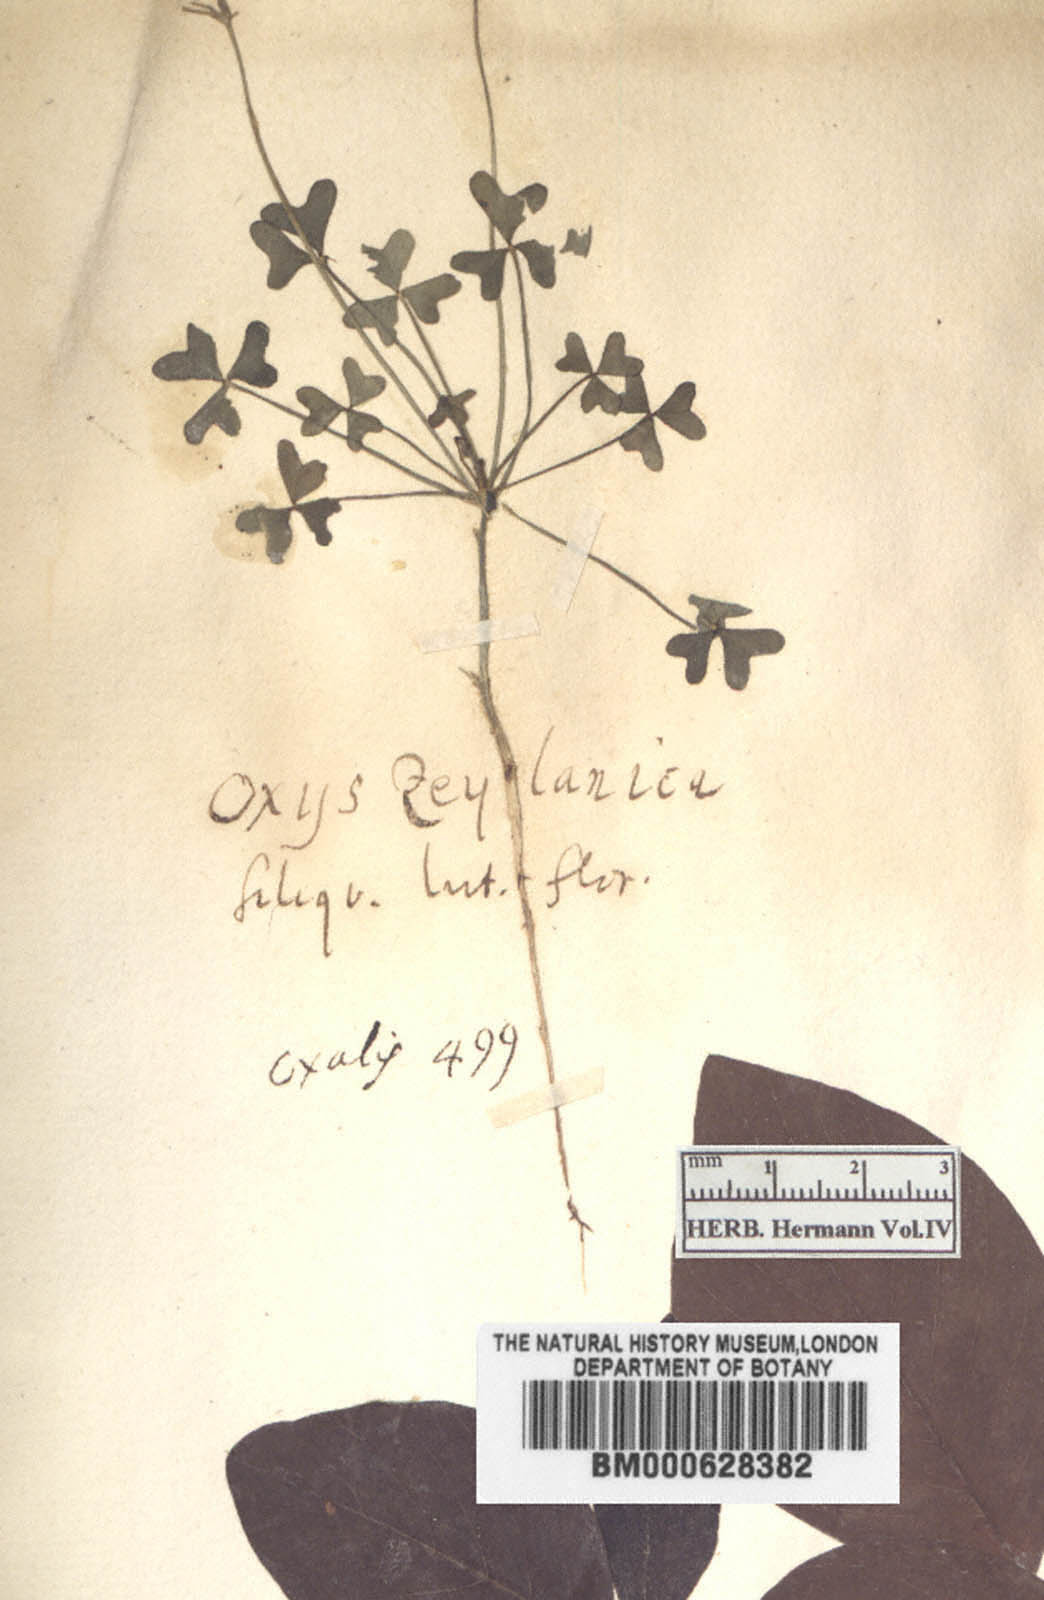 Oxys Zeylanica
siliqu. lut. flor.
Oxalis 499
mm 1 2 3
HERB. Hermann Vol.IV
THE NATURAL HISTORY MUSEUM,LONDON
DEPARTMENT OF BOTANY
BM000628382